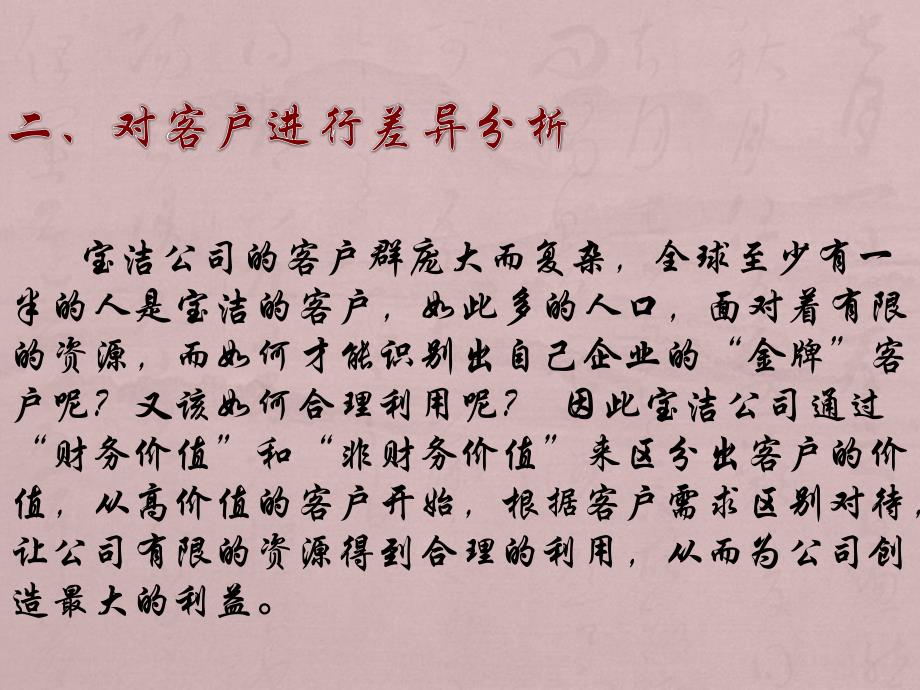 二、对客户进行差异分析
宝洁公司的客户群庞大而复杂，全球至少有一
半的人是宝洁的客户，如此多的人口，面对着有限
的资源，而如何才能识别出自己企业的“金牌”客
户呢？又该如何合理利用呢？ 因此宝洁公司通过
“财务价值”和“非财务价值”来区分出客户的价
值，从高价值的客户开始，根据客户需求区别对待，
让公司有限的资源得到合理的利用，从而为公司创
造最大的利益。